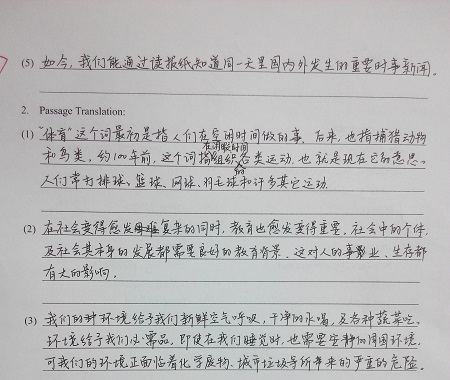 (5) 如今，我们能通过读报纸知道同一天里国内外发生的重要时事新闻。
2. Passage Translation:
(1) “体育”这个词最初是指人们在空闲时间做的事。后来，也指捕猎动物
在闲暇时间
和鸟类。约100年前，这个词指组织各类运动，也就是现在它的意思。
的
人们常打排球、篮球、网球、羽毛球和许多其它运动.
(2) 在社会变得愈发复杂的同时，教育也愈发变得重要。社会中的个体
及社会其本身的发展都需要良好的教育背景。这对人的事业、生存都
有大的影响。
(3) 我们的环境给予我们新鲜空气呼吸，干净的水喝，及各种蔬菜吃。
环境给予我们必需品，即使在我们睡觉时，也需要安静的周围环境。
可我们的环境正面临着化学废物、城市垃圾等所带来的严重的危险。